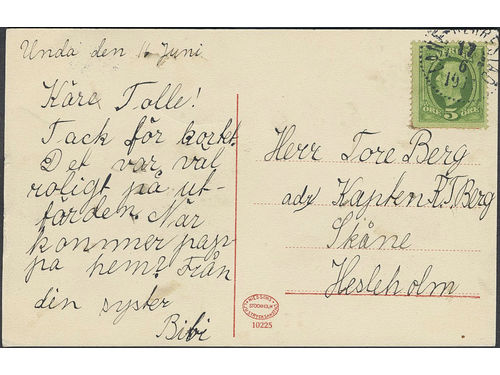 Unda den 16 Juni
Kära Tolle!
Tack för kortet.
Det var väl
roligt på ut-
färden. När
kommer pap-
pa hem? Från
din syster
Bibi
Herr Tore Berg
adr Kapten Berg
Skåne
Hesleholm
5 ÖRE ÖRE
STOCKHOLM
10225